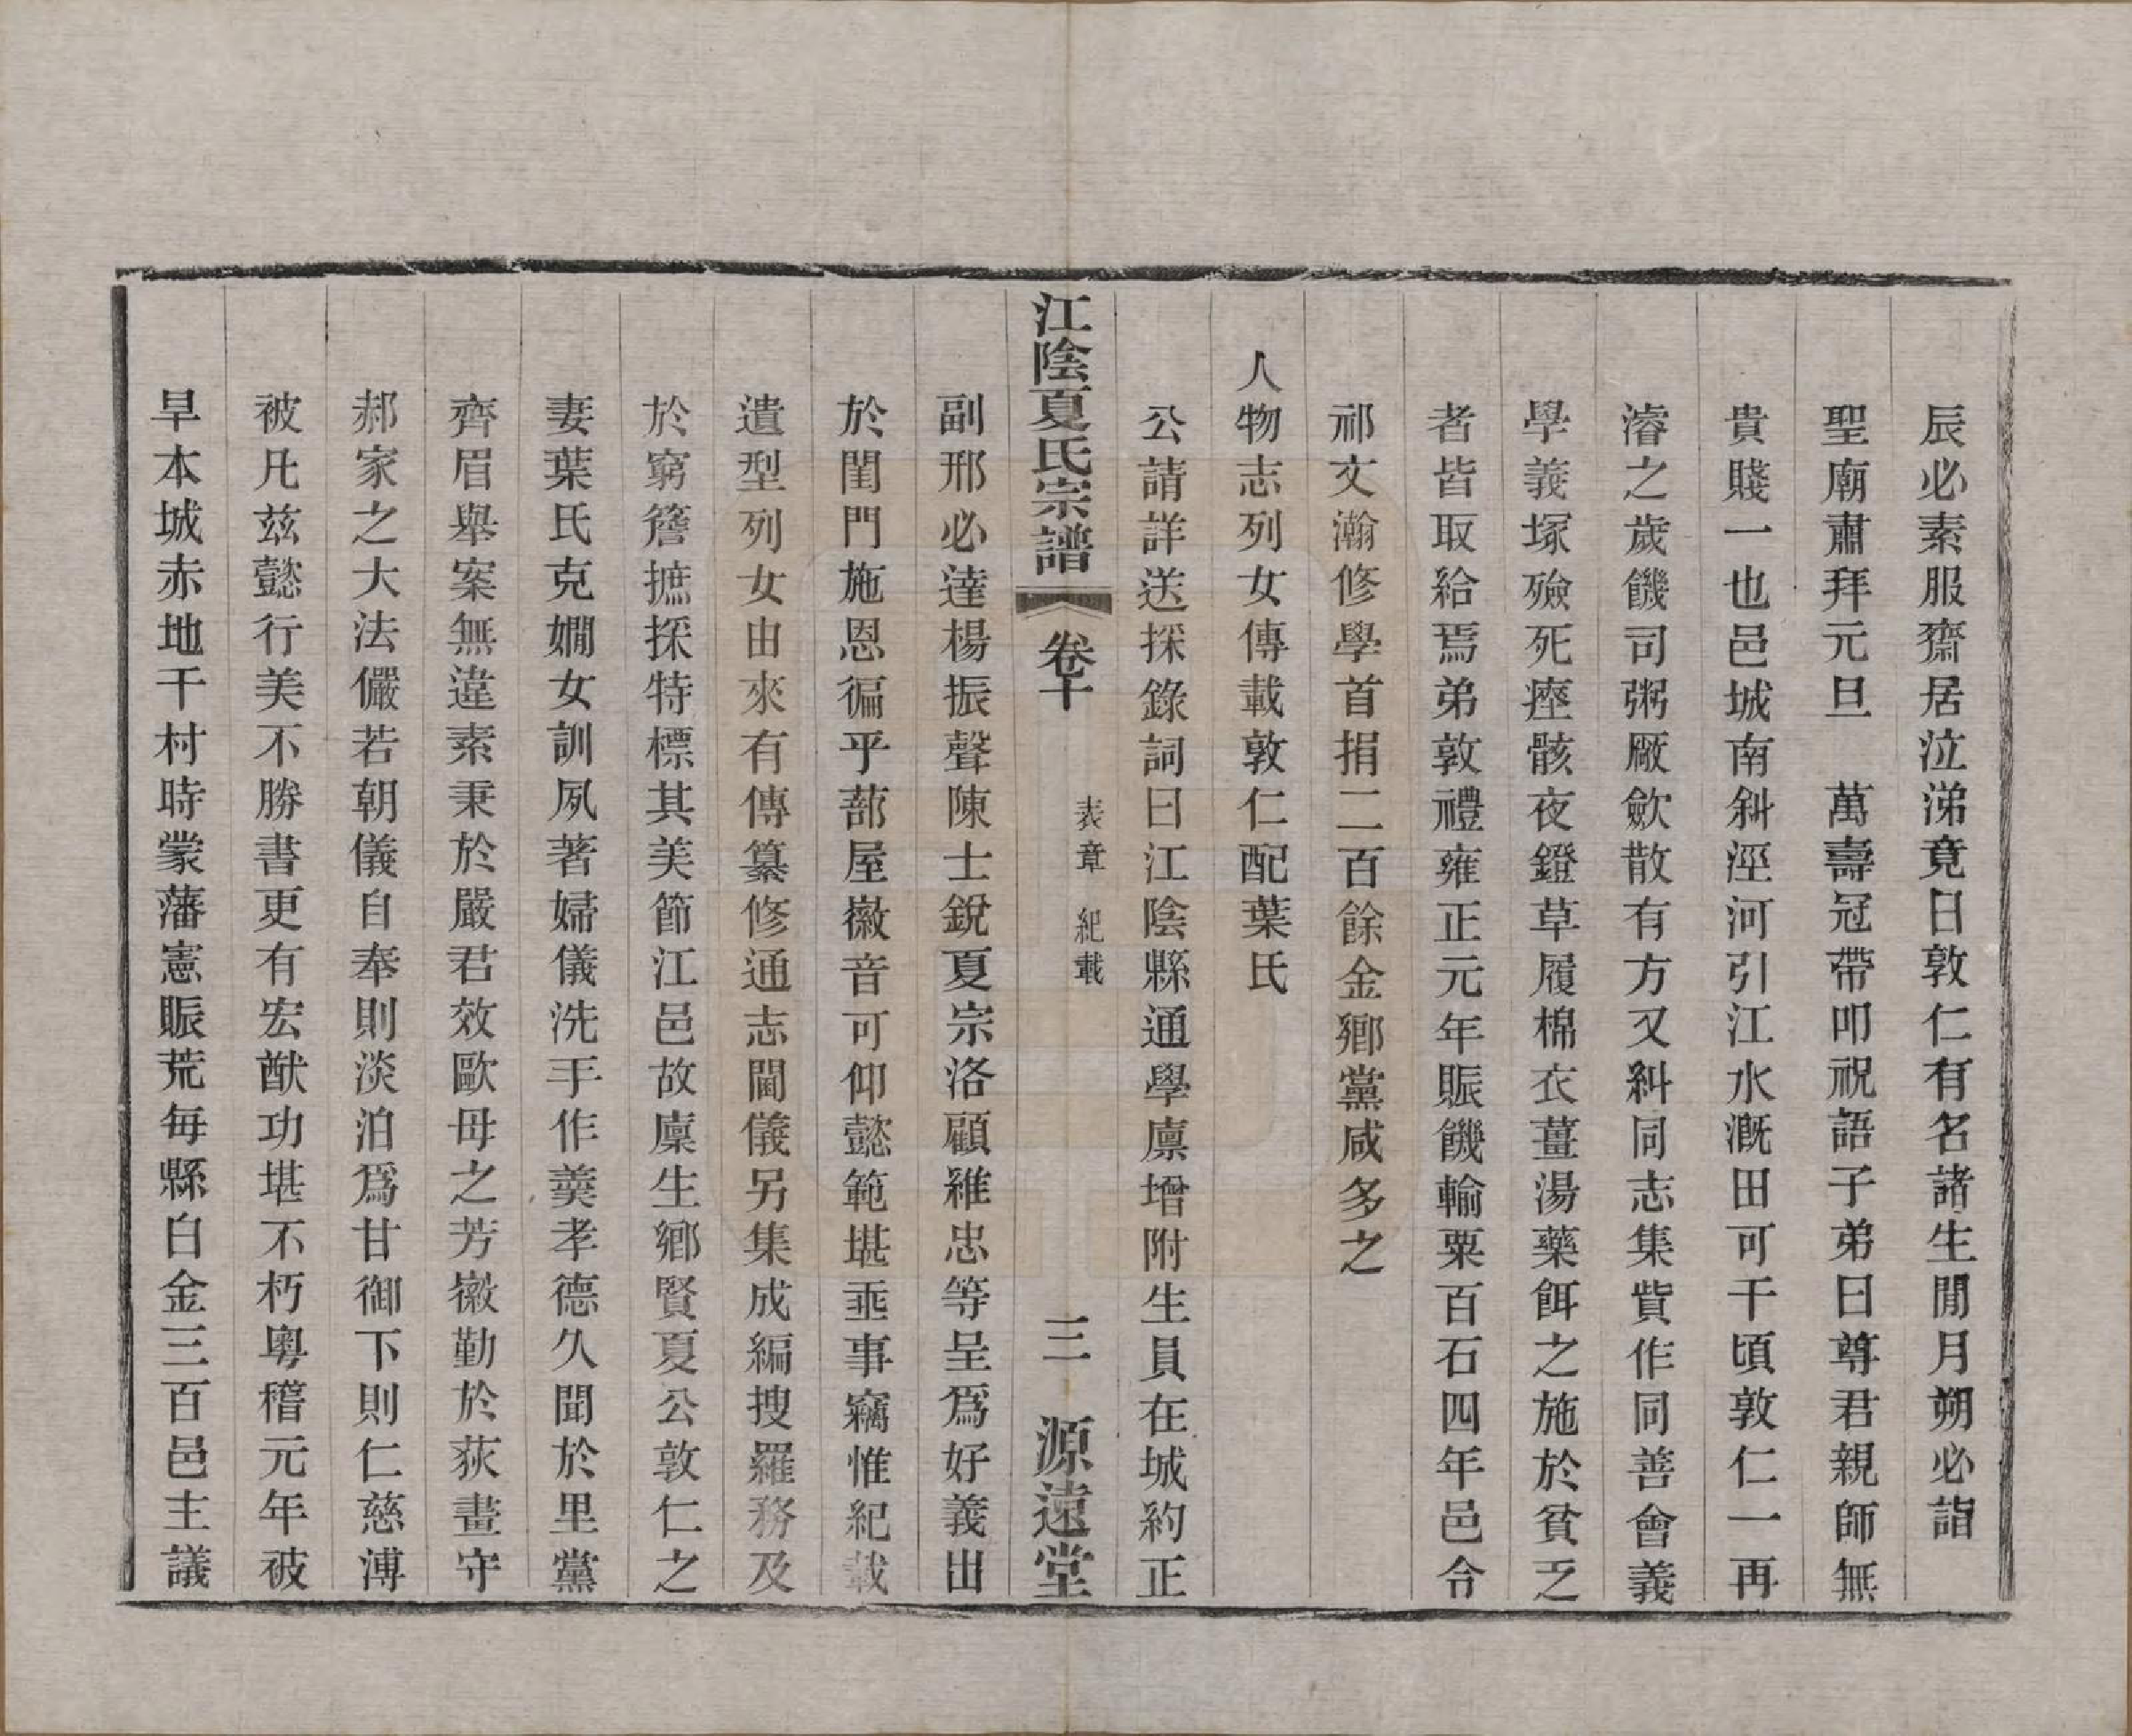 辰必素服齋居泣涕竟日敦仁有名諸生閒月朔必詣
聖廟肅拜元旦　萬壽冠帶叩祝語子弟曰尊君親師無
貴賤一也邑城南斜涇河引江水漑田可千頃敦仁一再
濬之歲饑司粥厰歛散有方又糾同志集貲作同善會義
學義塚殮死瘞骸夜鐙草履棉衣薑湯藥餌之施於貧乏
者皆取給焉弟敦禮雍正元年賑饑輸粟百石四年邑令
祁文瀚修學首捐二百餘金鄉黨咸多之
人物志列女傳載敦仁配葉氏
公請詳送採錄詞曰江陰縣通學廪增附生員在城約正
江陰夏氏宗譜　卷十　表章　紀載　三　源遠堂
副邢必達楊振聲陳士銳夏宗洛顧維忠等呈爲好義出
於閨門施恩徧乎蔀屋徽音可仰懿範堪垂事竊惟紀載
遺型列女由來有傳纂修通志閫儀另集成編搜羅務及
於窮簷摭採特標其美節江邑故廩生鄉賢夏公敦仁之
妻葉氏克嫺女訓夙著婦儀洗手作羹孝德久聞於里黨
齊眉舉案無違素秉於嚴君效歐母之芳徽勤於荻畫守
郝家之大法儼若朝儀自奉則淡泊爲甘御下則仁慈溥
被凡兹懿行美不勝書更有宏猷功堪不朽粵稽元年被
旱本城赤地千村時蒙藩憲賑荒每縣白金三百邑主議